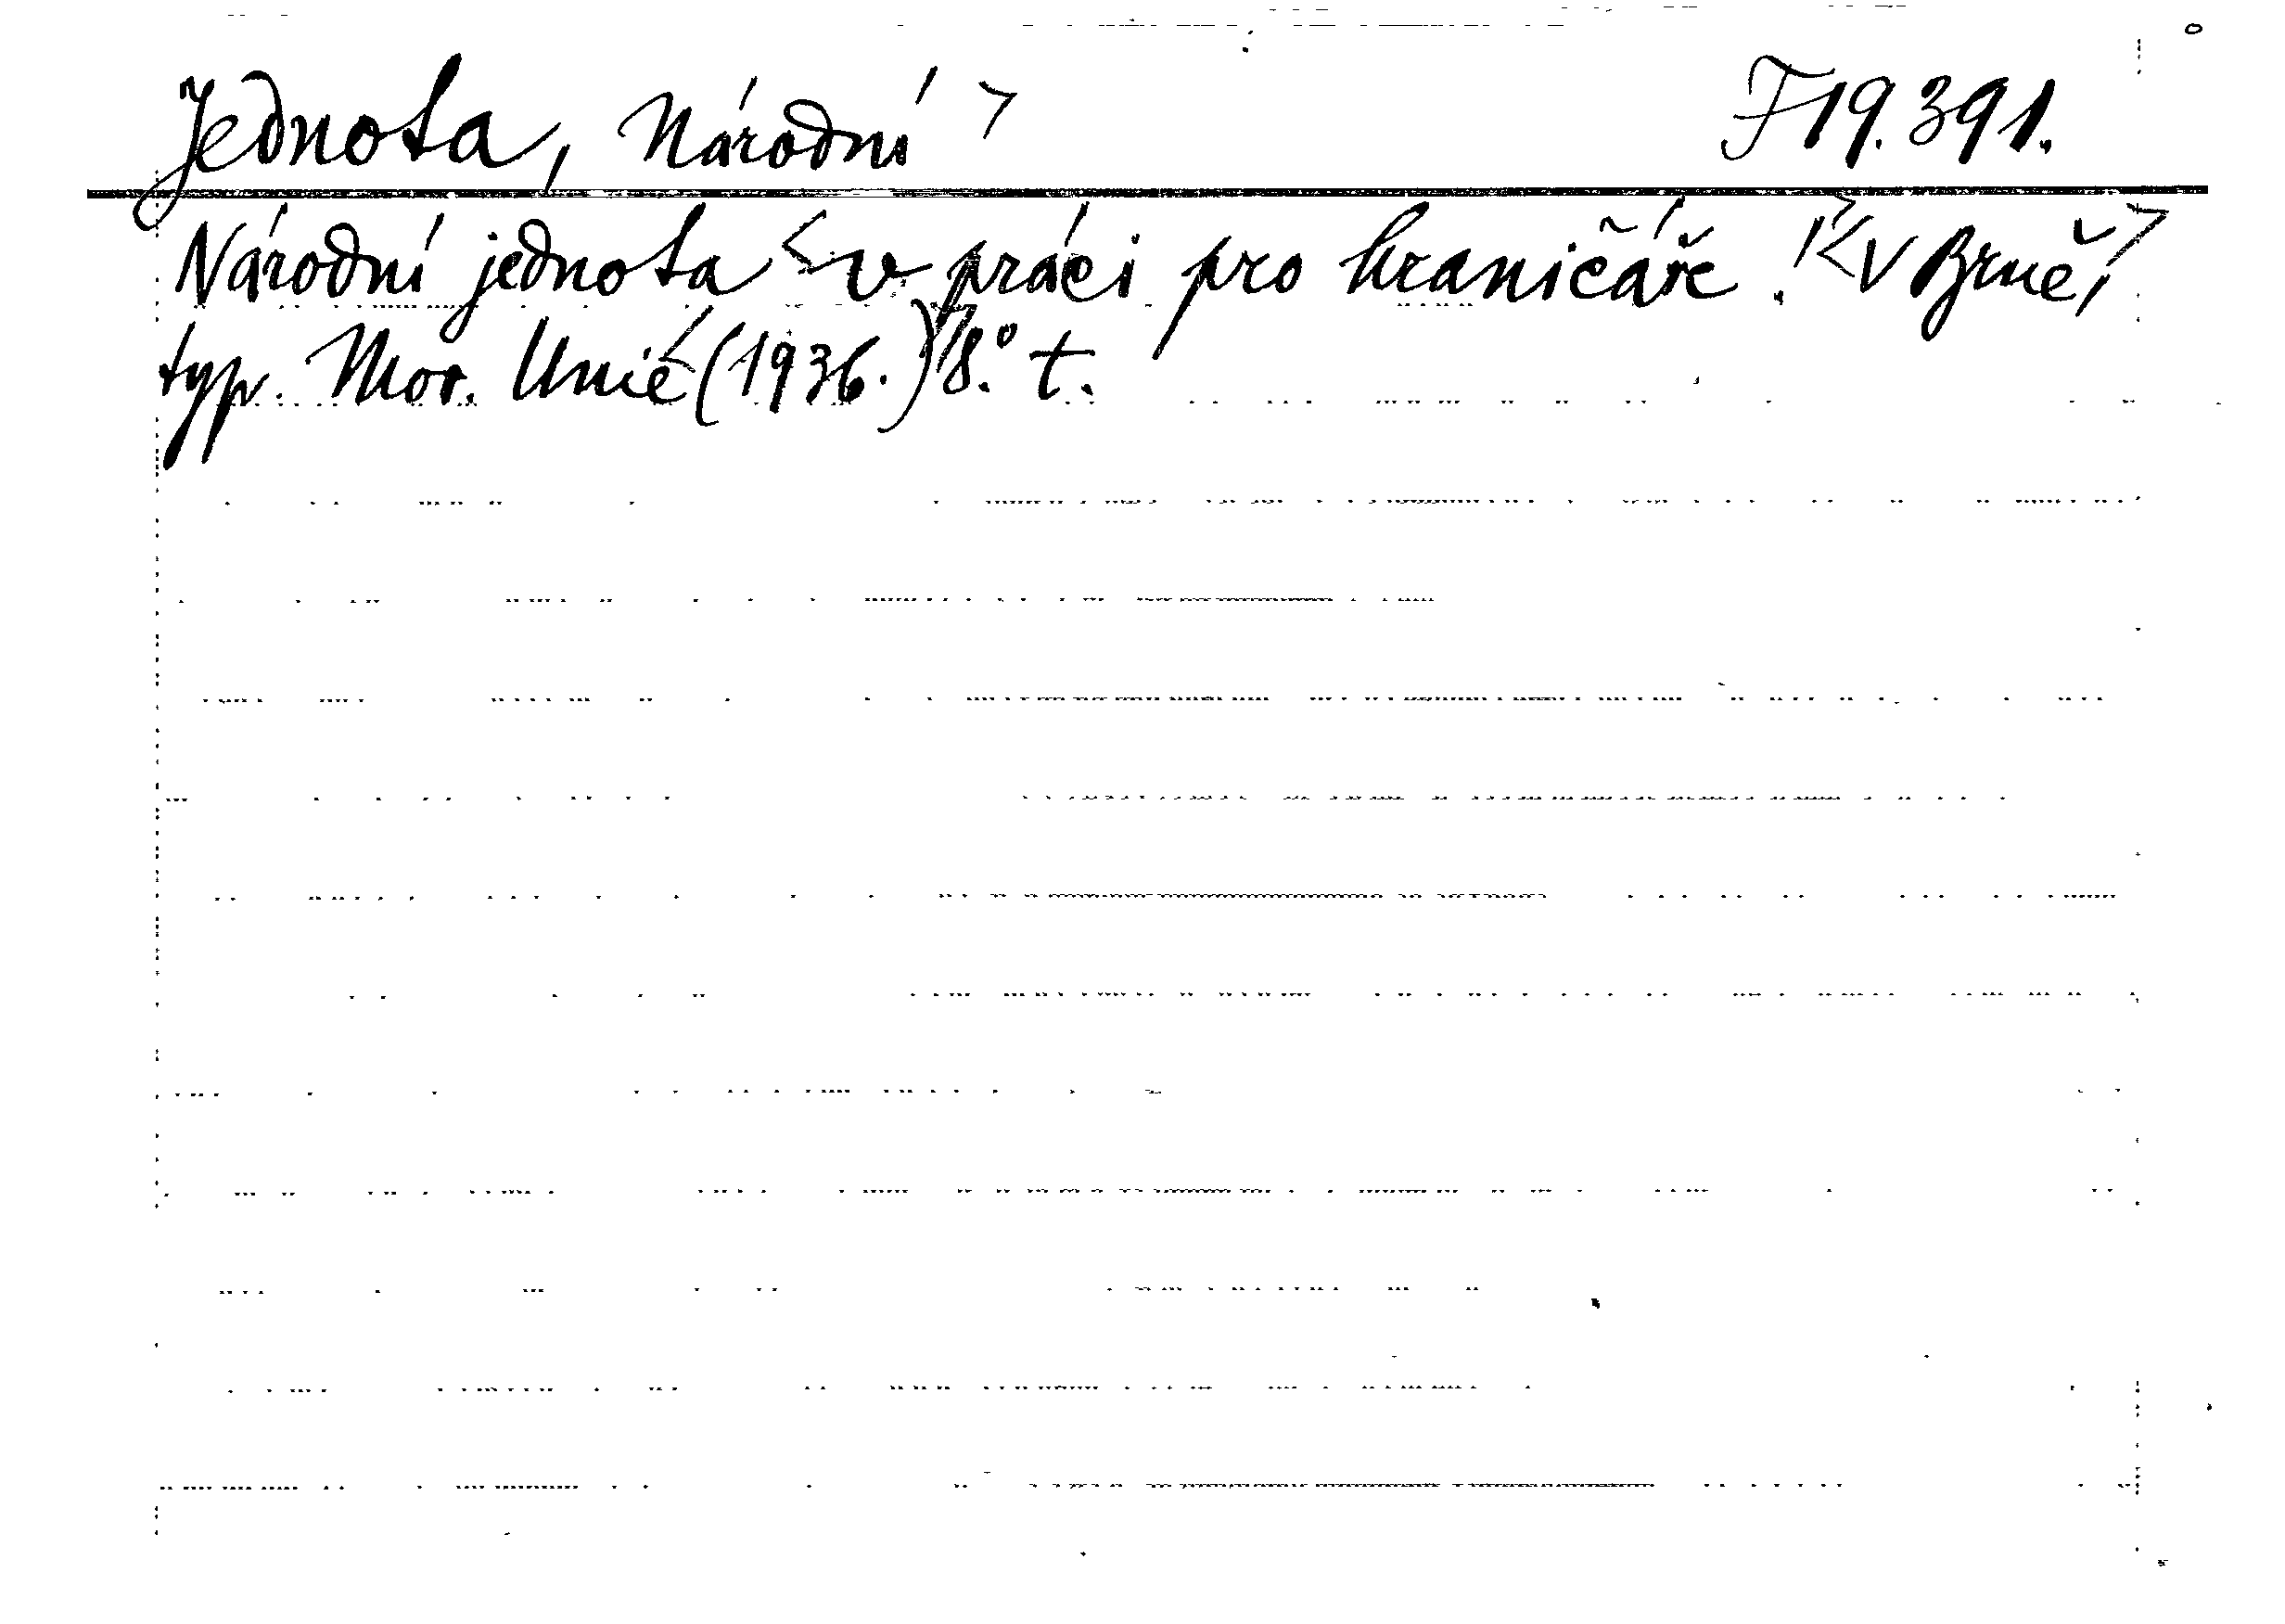 Jednota, Národní > F 19.391.
Národní jednota < v práci pro hraničáře. < V Brně, >
typ. Mor. Unie (1936.) 8.° t.